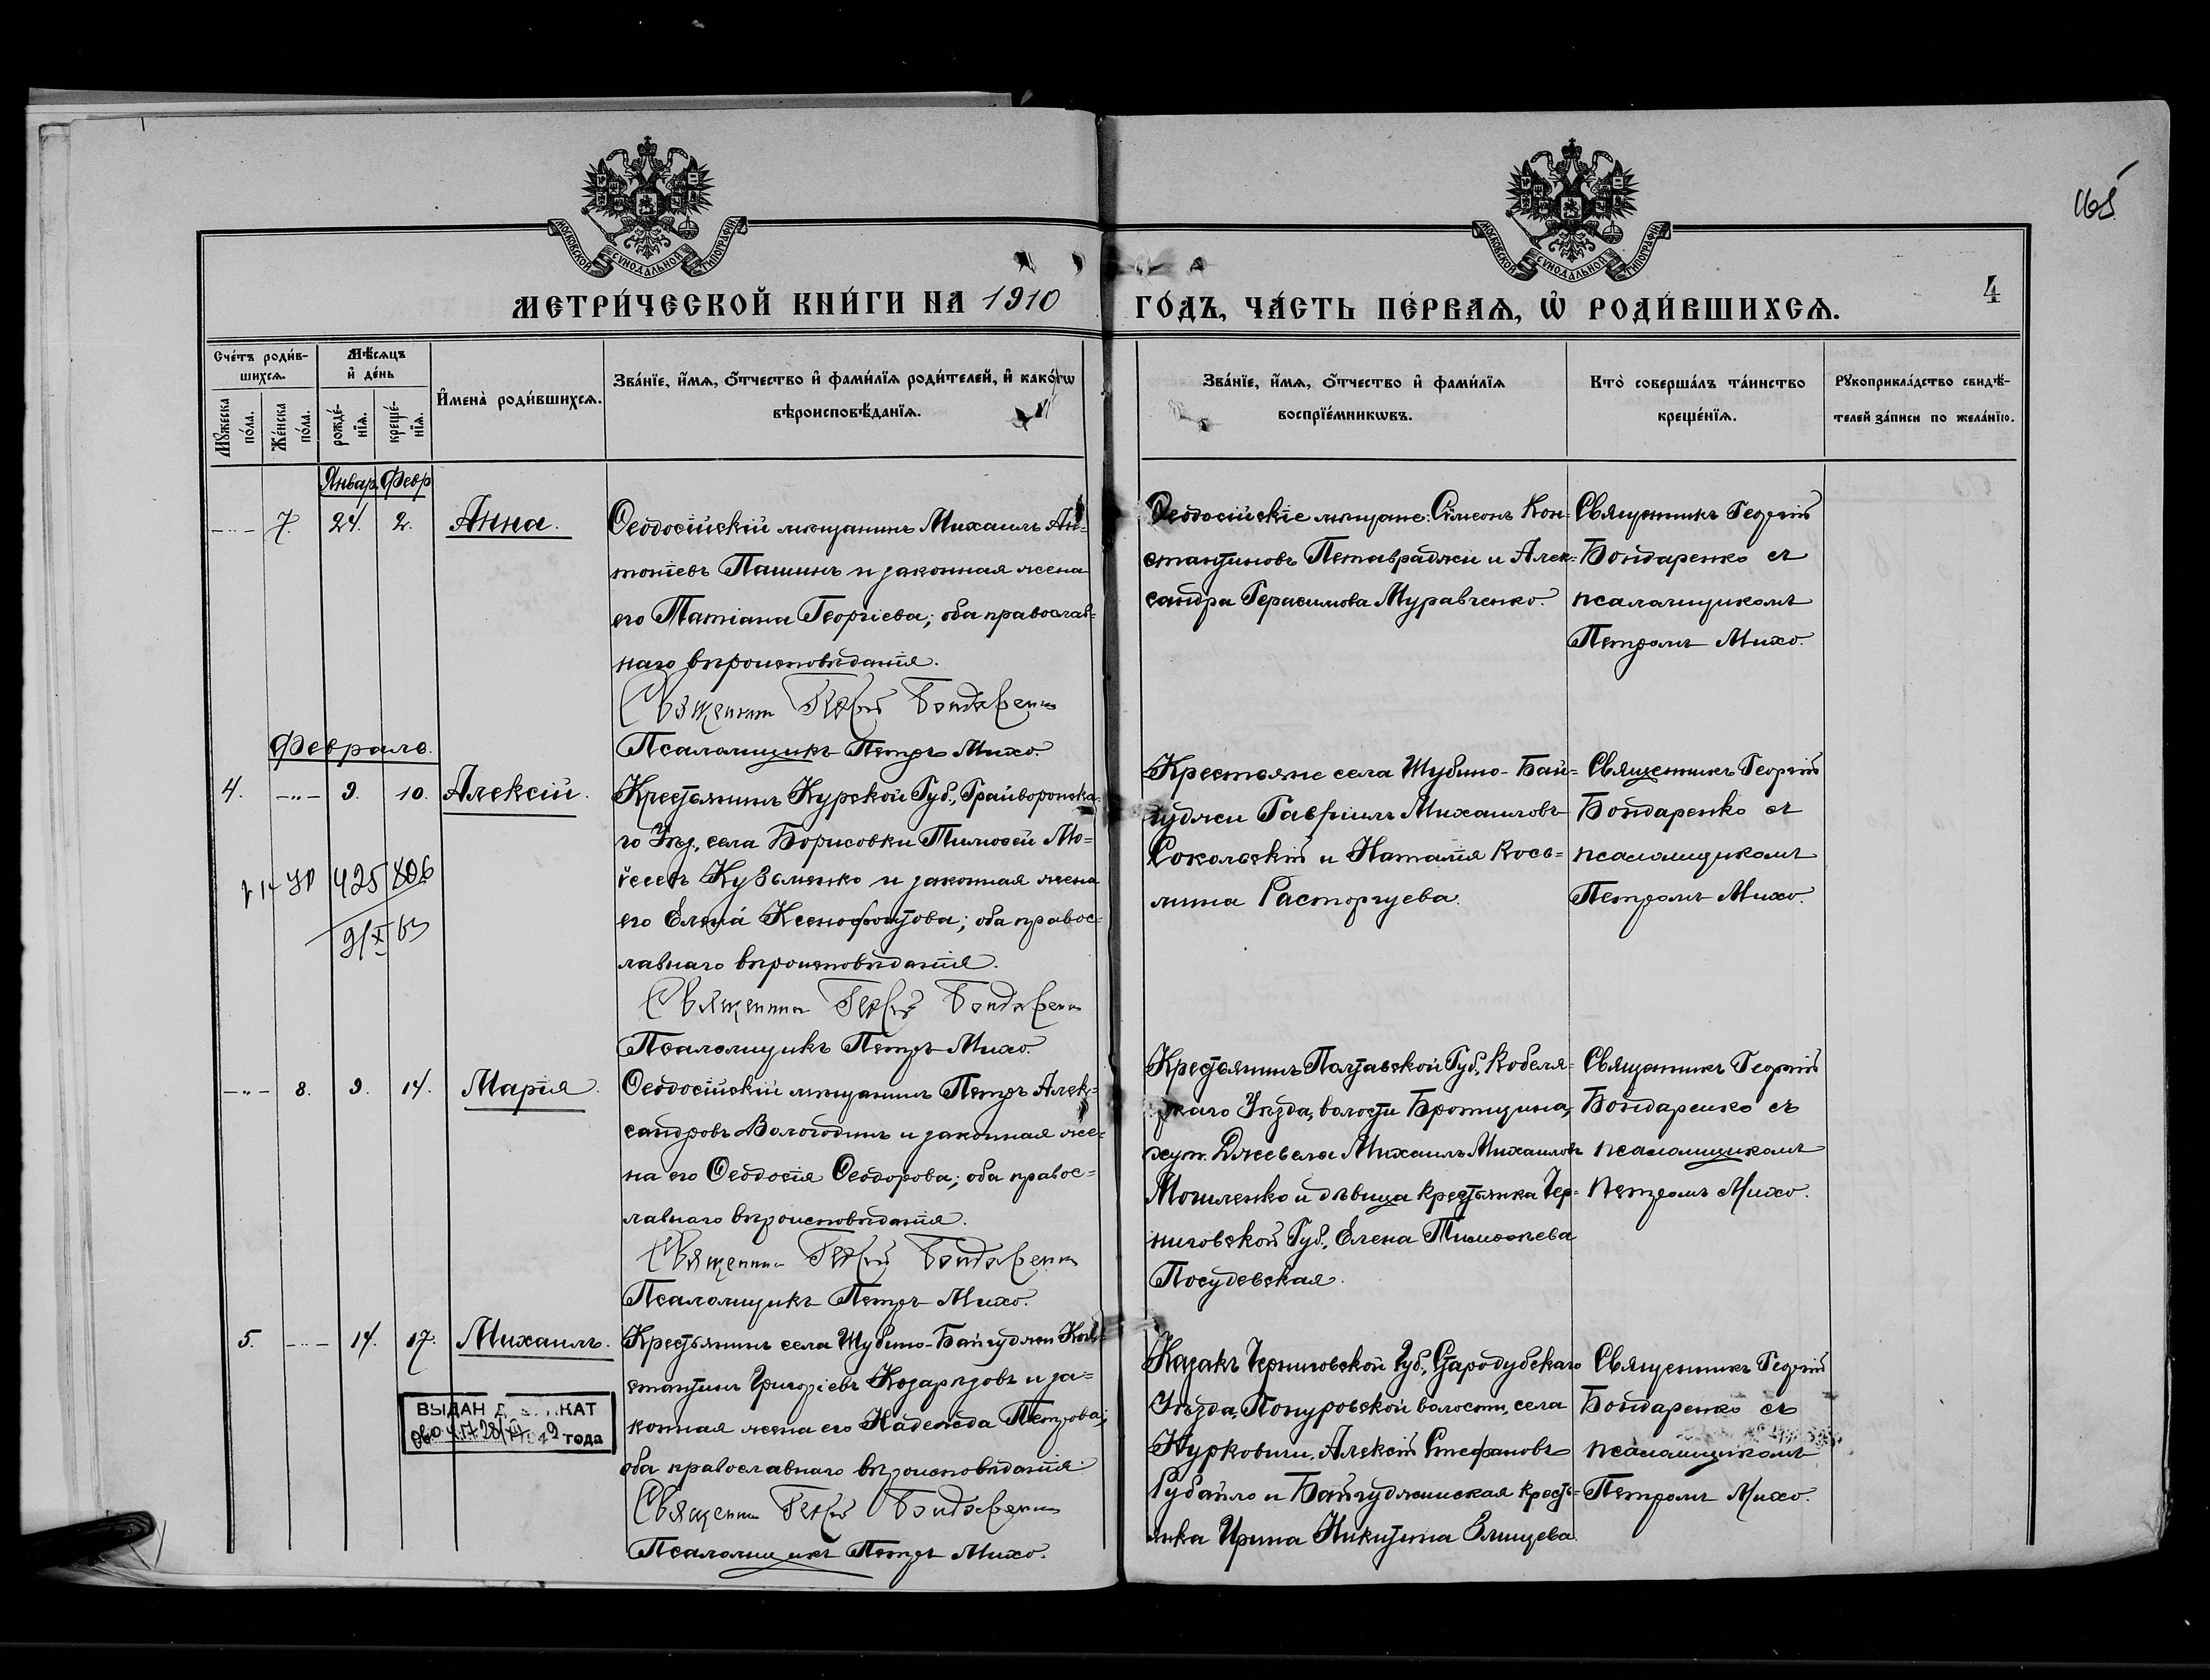 165
МОСКОВСКОЙ СУНОДАЛЬНОЙ ТИПОГРАФІИ
МОСКОВСКОЙ СУНОДАЛЬНОЙ ТИПОГРАФІИ
МЕТРИ́ЧЕСКОЙ КНИ́ГИ НА 1910
ГО́ДЪ, ЧА́СТЬ ПЕ́РВАѦ, Ѡ РОДИ́ВШИХСѦ.
4
Сче́тъ роди́в-
шихсѧ.
Мѣ́сѧцъ
и де́нь
Мꙋжеска по́ла.
Же́нска по́ла.
рожде́-нїѧ.
креще́-нїѧ.
И҆мена̀ роди́вшихсѧ.
Зва́нїе, и҆́мѧ, ѻ҆́тчество и҆ фами́лїѧ роди́телей, и҆ како́гѡ
вѣроисповѣ́данїѧ.
Зва́нїе, и҆́мѧ, ѻ҆́тчество и҆ фами́лїѧ
воспрїе́мникѡвъ.
Кто̀ соверша́лъ та́инство
креще́нїѧ.
Рꙋкоприкла́дство свидѣ́-
телей за́писи по жела́нїю.
Январ. Февр
7. 24. 2. Анна.
Ѳеодосійскій мѣщанинъ Михаилъ Ан-
тоніевъ Пашинъ и законная жена
его Татіана Георгіева; оба православ-
наго вѣроисповѣданія.
Священникъ Георгій Бондаренко
Псаломщикъ Петръ Михо.
Ѳеодосійскіе мѣщане: Сѵмеонъ Кон-
стантиновъ Петавраджи и Алек-
сандра Герасимова Муравченко.
Священникъ Георгій
Бондаренко съ
псаломщикомъ
Петромъ Михо.
Февраль.
4. 9. 10. Алексій.
425
9/X 63
Крестьянинъ Курской Губ., Грайворонска-
го Уѣз., села Борисовки Тимоѳей Мо-
ѵсеевъ Кузьменко и законная жена
его Елена Ксенофонтова; оба правос-
лавнаго вѣроисповѣданія.
Священникъ Георгій Бондаренко
Псаломщикъ Петръ Михо.
Крестьяне села Шубино-Бай-
гуджи Гавріилъ Михаиловъ
Сокольскій и Наталія Кось-
мина Расторгуева.
Священникъ Георгій
Бондаренко съ
псаломщикомъ
Петромъ Михо.
8. 9. 14. Марія.
Ѳеодосійскій мѣщанинъ Петръ Алек-
сандровъ Вологодинъ и законная же-
на его Ѳеодосія Ѳеодорова; оба правос-
лавнаго вѣроисповѣданія.
Священникъ Георгій Бондаренко
Псаломщикъ Петръ Михо.
Крестьянинъ Полтавской Губ., Кобеля-
скаго Уѣзда, волости Бротцина,
хут. Джевела Михаилъ Михаиловъ
Могиленко и дѣвица крестьянка Чер-
ниговской Губ., Елена Тимоѳеева
Посудевская.
Священникъ Георгій
Бондаренко съ
псаломщикомъ
Петромъ Михо.
5. 14. 17. Михаилъ.
ВЫДАН
года
Крестьянинъ села Шубино-Байгуджи Кон-
стантинъ Григоріевъ Козарѣзовъ и за-
конная жена его Надежда Петрова;
оба православнаго вѣроисповѣданія.
Священникъ Георгій Бондаренко
Псаломщикъ Петръ Михо.
Казакъ Черниговской Губ., Стародубскаго
Уѣзда, Понуровской волости, села
Курковичи, Алексій Стефановъ
Рубайло и Байгуджинская кресть-
янка Ирина Никитина Злищева.
Священникъ Георгій
Бондаренко съ
псаломщикомъ
Петромъ Михо.